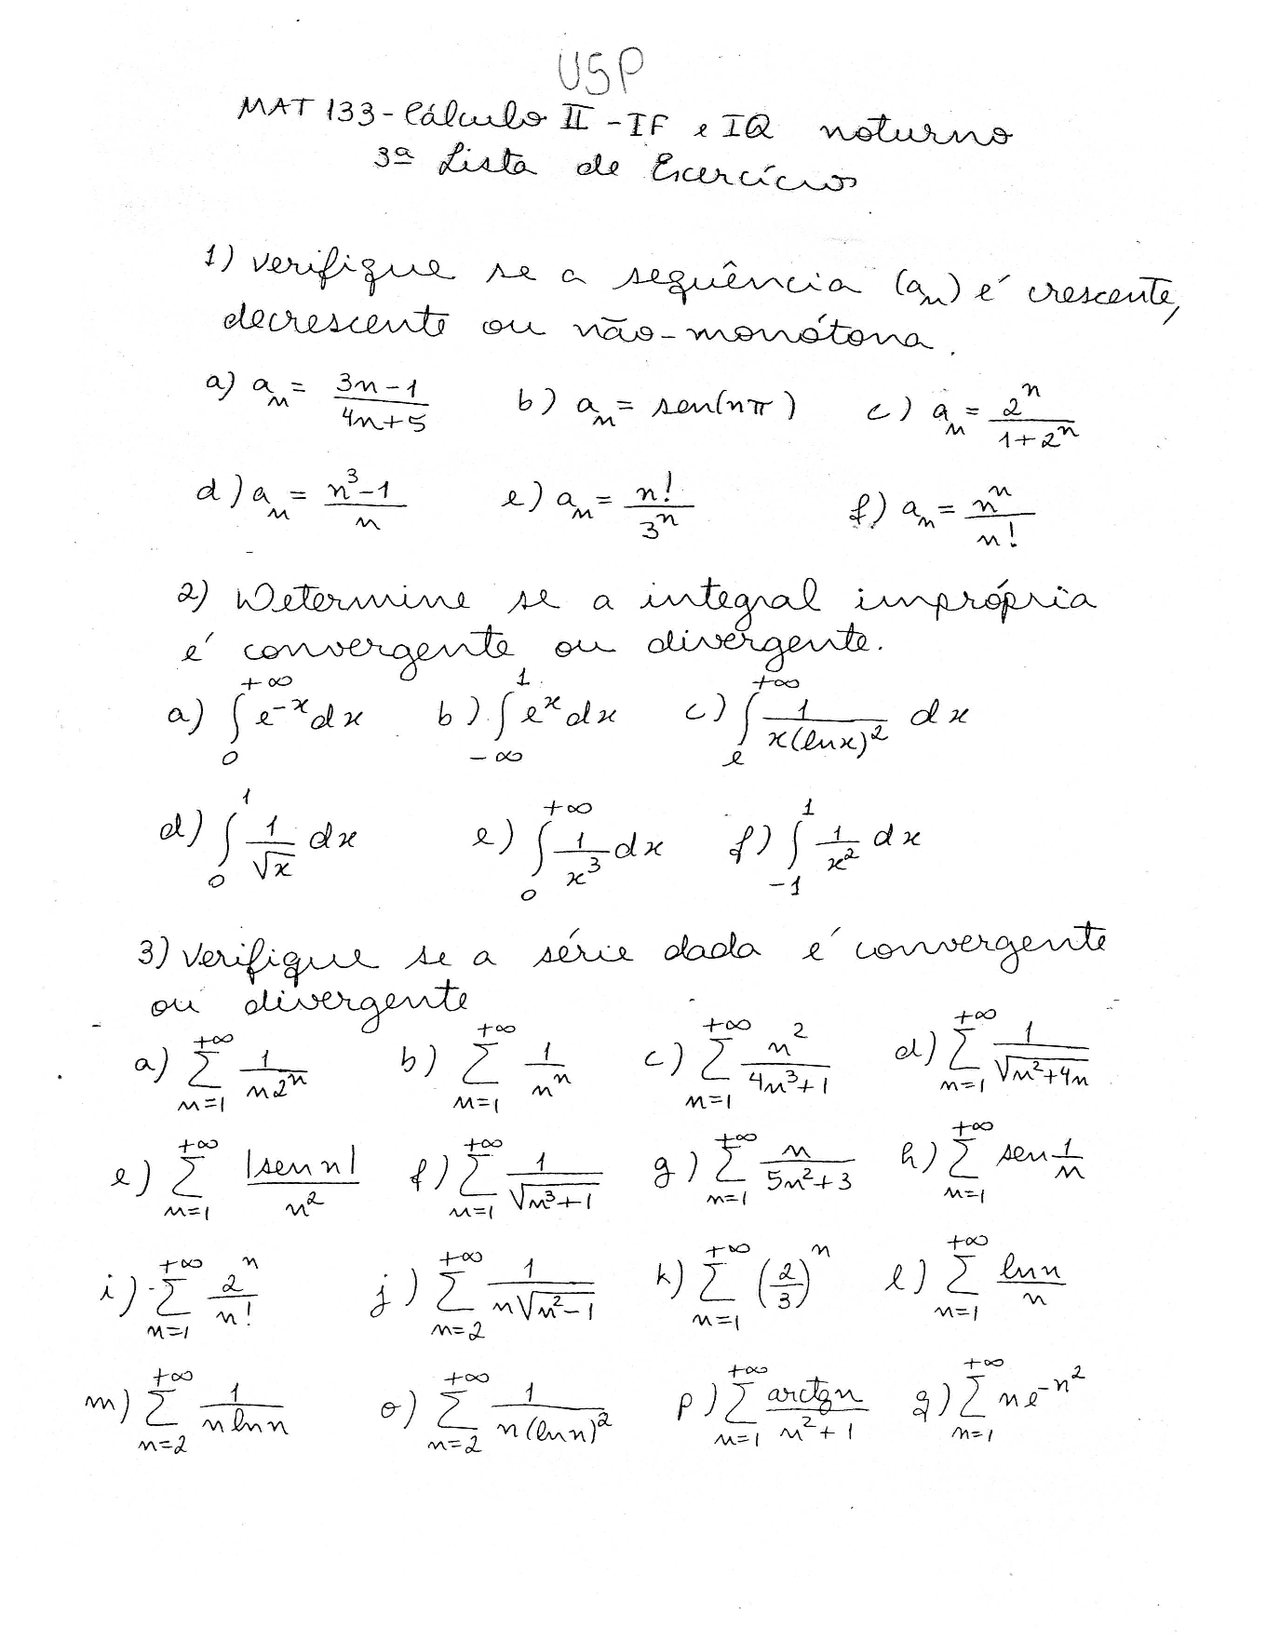 USP
MAT 133 - Cálculo II - IF e IQ noturno
3ª Lista de Exercícios
1) Verifique se a sequência (aₙ) é crescente,
decrescente ou não-monótona.
a) aₙ = (3n-1)/(4n+5) b) aₙ = sen(nπ) c) aₙ = 2ⁿ/(1+2ⁿ)
d) aₙ = (n³-1)/n e) aₙ = n!/3ⁿ f) aₙ = nⁿ/n!
2) Determine se a integral imprópria
é convergente ou divergente.
a) ∫₀^{+∞} e^{-x} dx b) ∫_{-∞}^{1} e^x dx c) ∫_e^{+∞} 1/(x(ln x)²) dx
d) ∫₀¹ 1/√x dx e) ∫₀^{+∞} 1/x³ dx f) ∫_{-1}^{1} 1/x² dx
3) Verifique se a série dada é convergente
ou divergente
a) ∑_{n=1}^{+∞} 1/(n2ⁿ) b) ∑_{n=1}^{+∞} 1/nⁿ c) ∑_{n=1}^{+∞} n²/(4n³+1) d) ∑_{n=1}^{+∞} 1/√(n²+4n)
e) ∑_{n=1}^{+∞} |sen n|/n² f) ∑_{n=1}^{+∞} 1/√(n³+1) g) ∑_{n=1}^{+∞} n/(5n²+3) h) ∑_{n=1}^{+∞} sen 1/n
i) ∑_{n=1}^{+∞} 2ⁿ/n! j) ∑_{n=2}^{+∞} 1/(n√(n²-1)) k) ∑_{n=1}^{+∞} (2/3)ⁿ l) ∑_{n=1}^{+∞} ln n/n
m) ∑_{n=2}^{+∞} 1/(n ln n) o) ∑_{n=2}^{+∞} 1/(n(ln n)²) p) ∑_{n=1}^{+∞} arctg n/(n²+1) q) ∑_{n=1}^{+∞} n e^{-n²}